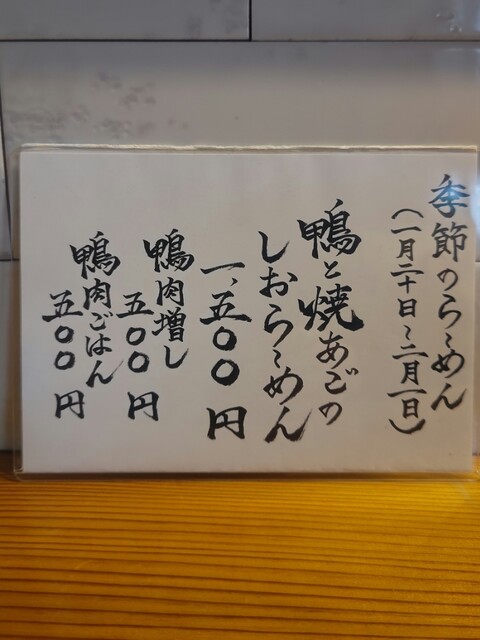 季節のらーめん
(一月二十日~二月一日)
鴨と焼あごの
しおらーめん
一、五〇〇円
鴨肉増し
五〇〇円
鴨肉ごはん
五〇〇円